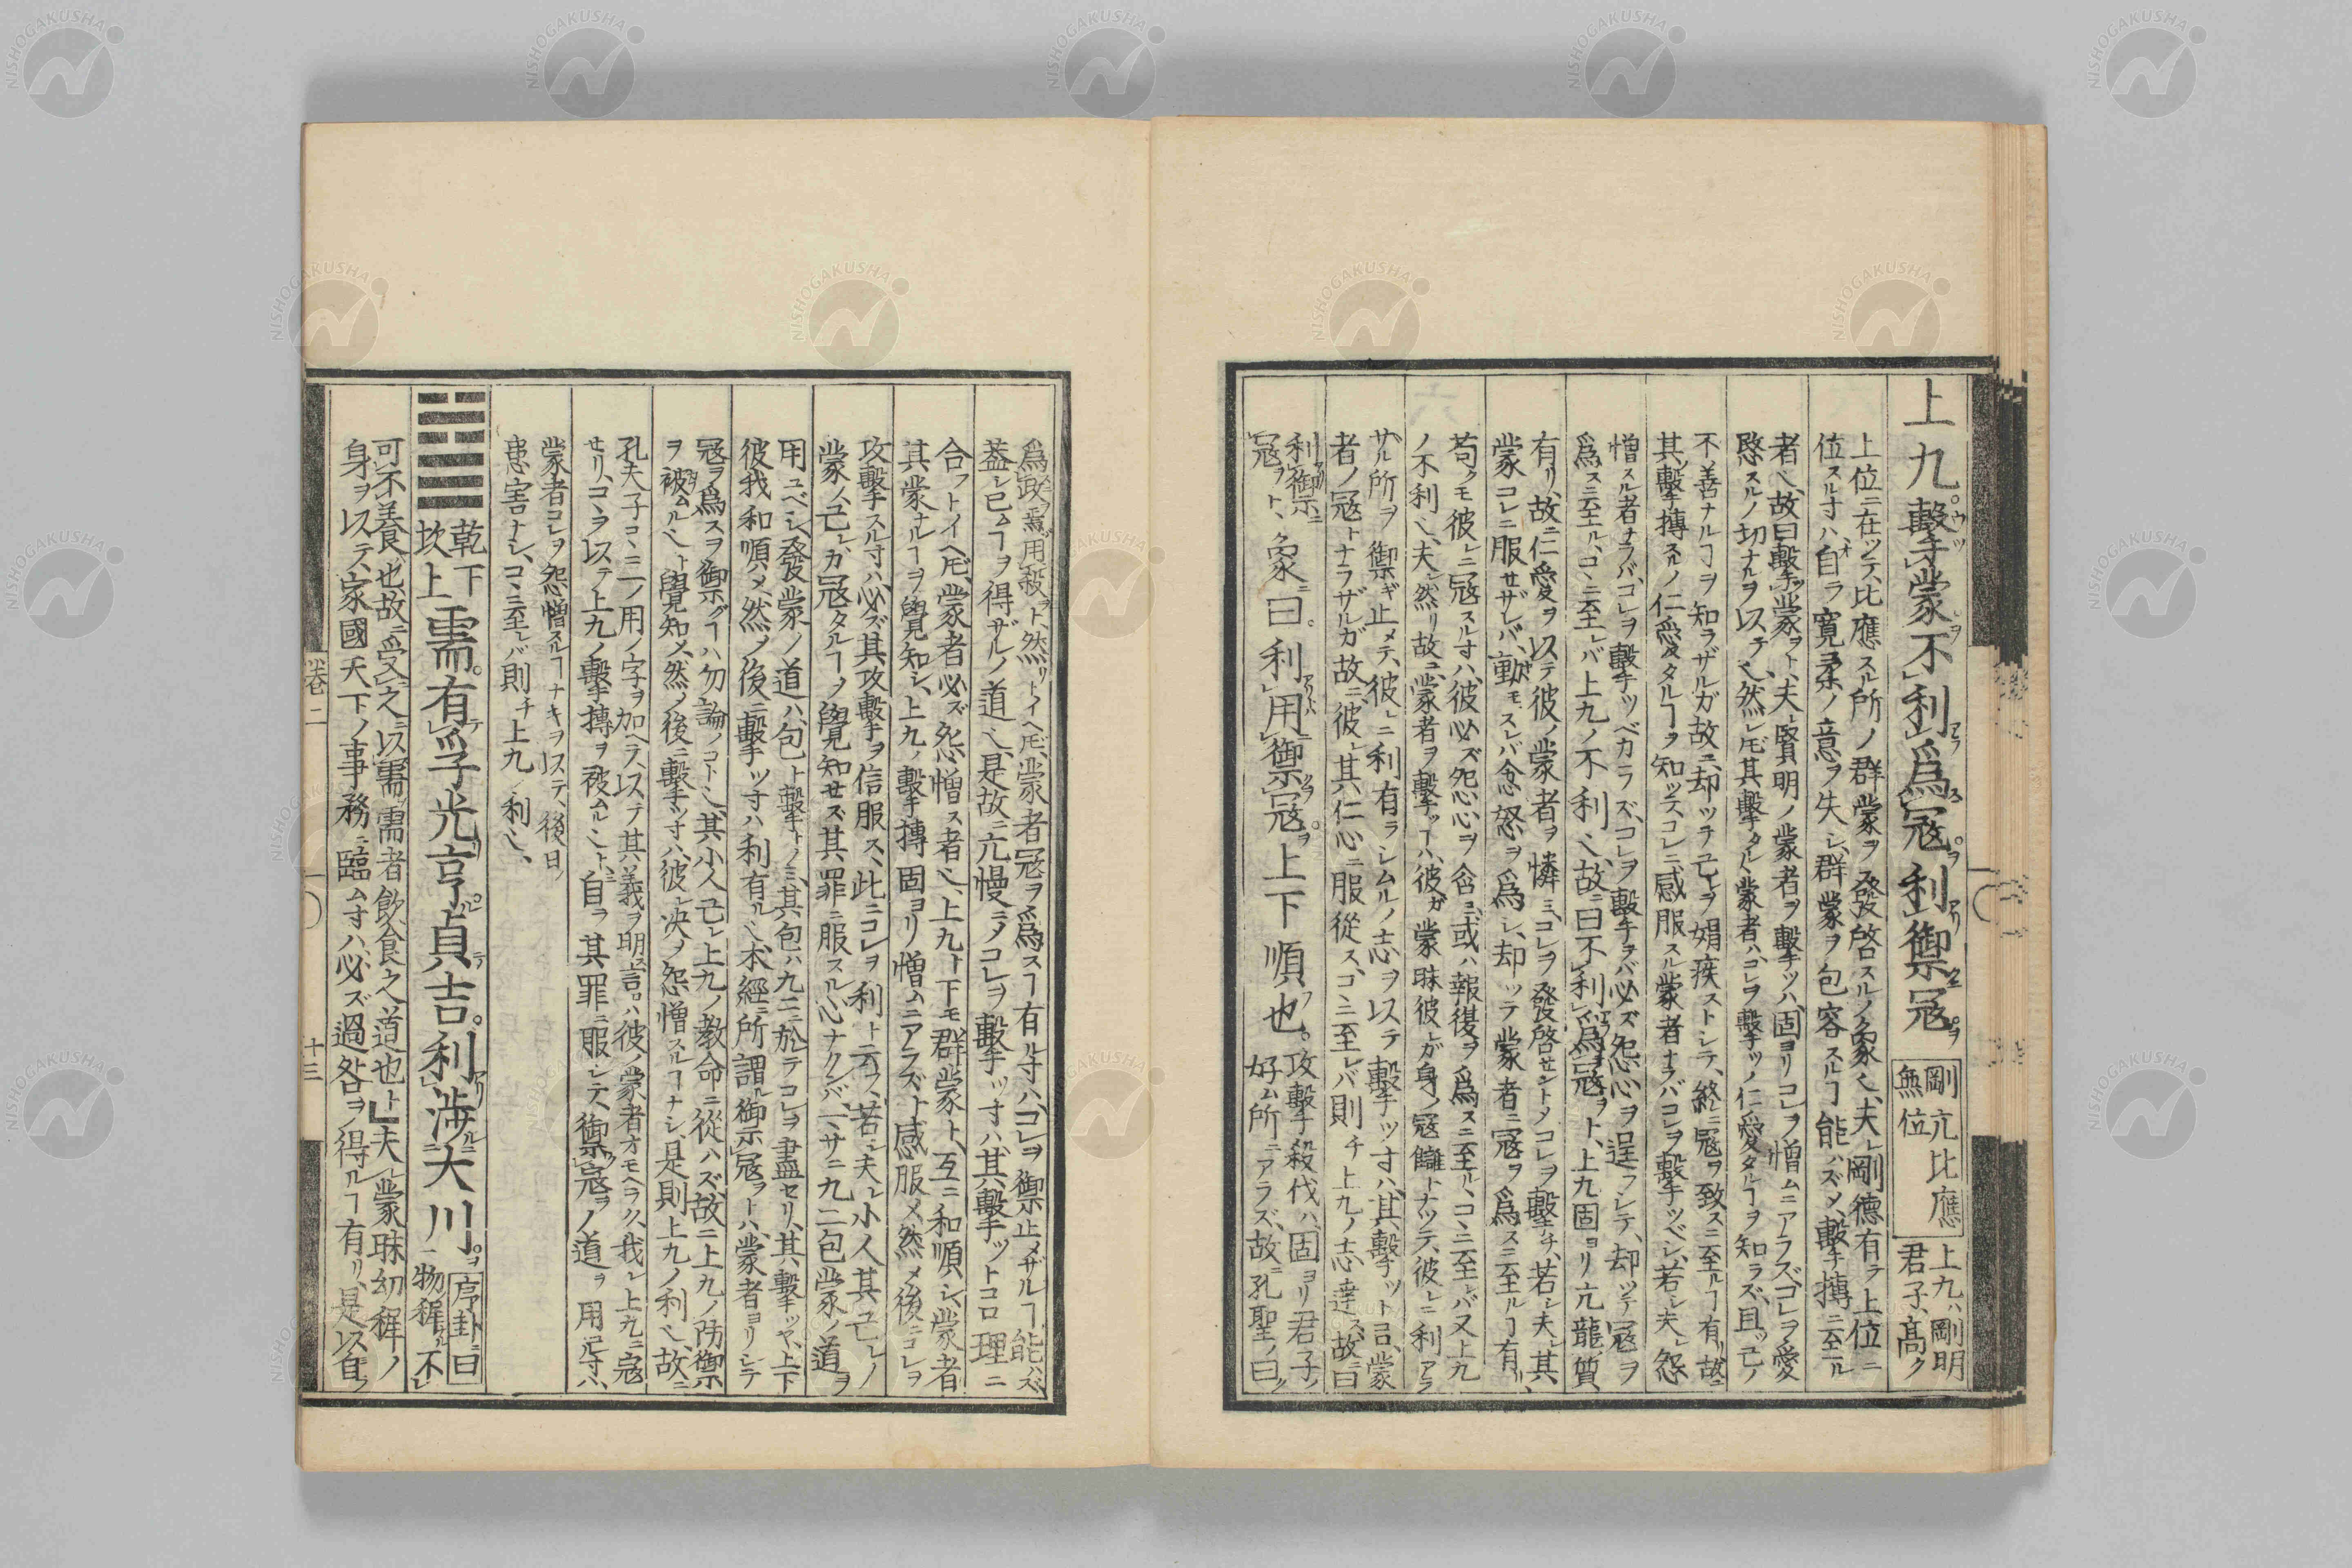 上九。擊蒙不利爲冦。利御冦。剛亢比應無位上九ハ剛明君子高ク
上位ニ在ツテ、比應スル所ノ群蒙ヲ發啓スルノ象ヘ、夫レ剛德有テ上位ニ
位スル寸ハ、自ラ寬柔ノ意ヲ失シ、群蒙ヲ包容スルヿ能ハズメ、擊チ摶ニ至ル
者ヘ、故曰擊蒙ヲト、夫レ賢明ノ蒙者ヲ擊ツハ、固ヨリコレヲ憎ムニアラズ、コレヲ愛
愍スルノ切ナルヲ以テヘ、然レ𪜈其擊タル丶蒙者ハ、コレヲ擊ツノ仁愛タルヿヲ知ラズ、且ツ己ノ
不善ナルヿヲ知ラザルガ故ニ、却ツテ己レヲ媢疾ストシテ、終ニ冦ヲ致スニ至ルヿ有リ、故ニ
其擊摶スルノ仁愛タルヿヲ知ツテ、コレニ感服スル蒙者ナラバ、コレヲ擊ツベシ、若シ夫レ怨
憎スル者ナラバ、コレヲ擊ツベカラズ、コレヲ擊テバ必ズ怨心ヲ逞フシテ、却ツテ冦ヲ
爲スニ至ル、コ丶ニ至レバ上九ノ不利ヘ、故ニ曰不利爲冦ヲト、上九固ヨリ亢龍ノ質
有リ、故ニ仁愛ヲ以テ彼ノ蒙者ヲ憐ミ、コレヲ發啓セントメコレヲ擊チ、若シ夫レ其
蒙コレニ服セザレバ、動モスレバ忿怒ヲ爲シ、却ッテ蒙者ニ冦ヲ爲スニ至ルヿ有リ、
苟クモ彼レニ冦スル寸ハ、彼必ズ怨心ヲ含ミ、或ハ報復ヲ爲スニ至ル、コ丶ニ至レバ又上九
ノ不利ヘ、夫レ然リ故ニ、蒙者ヲ擊ツヿハ、彼ガ蒙昧彼レガ身ノ冦讎トナツテ、彼レニ利アラ
サル所ヲ御ギ止メテ、彼レニ利有ラシムルノ志ヲ以テ擊ツ寸ハ、其擊ツトコロノ蒙
者ノ冦トナラザルガ故ニ、彼レ其仁心ニ服從ス、コ丶ニ至レバ則チ上九ノ志達ス、故ニ曰
利御冦ヲト、象曰。利用御冦。上下順也。攻擊殺伐ハ、固ヨリ君子ノ好ム所ニアラズ、故ニ孔聖ノ曰ク
爲政焉用殺ヲト、然リトイヘ𪜈、蒙者冦ヲ爲スヿ有ル寸ハ、コレヲ御止メザルヿ能ハズ
蓋シ已ムヿヲ得ザルノ道ヘ、是故ニ亢慢ニメコレヲ擊ツ寸ハ、其擊ツトコロ理ニ
合フトイヘ𪜈、蒙者必ズ怨憎ス者ヘ、上九ト下モ群蒙ト、互ニ和順シ、蒙者
其蒙ナルヿヲ覺知シ、上九ノ擊摶固ヨリ憎ムニアラズト感服メ然メ後ニコレヲ
攻擊スル寸ハ、必ズ其攻擊ヲ信服ス、此ニコレヲ利ト云フ、若シ夫レ小人其己レノ
蒙ノ己レガ冦タルヿノ覺知セズ其罪ニ服スル心ナクンバ、一ニサニ九二包蒙ノ道ヲ
用ユベシ、發蒙ノ道ハ、包ト擊トノミ、其包ハ九二ニ於テコレヲ盡セリ、其擊ツヤ、上下
彼我和順メ、然ノ後ニ擊ツ寸ハ利有ルヘ、本經ニ所謂御冦ヲトハ、蒙者ヨリシテ
冦ヲ爲スヲ御グヿハ勿論ノコトヘ、其小人己レ上九ノ教命ニ從ハズ、故ニ上九ノ防御
ヲ被ムルヘト覺知メ、然ノ後ニ擊ツ寸ハ、彼レ决ノ怨憎スルヿナシ、是則上九ノ利ヘ、故ニ
孔夫子コ丶ニ一ノ用ノ字ヲ加ヘテ、以テ其義ヲ明言ハ彼ノ蒙者オモヘラク、我レ上九ニ冦
セリ、コ丶ヲ以テ上九ノ擊摶ヲ被ムルヘト、自ヲ其罪ニ服シテ、御冦ヲノ道ヲ用ル寸ハ、
蒙者コレヲ怨憎スルヿナキヲ以テ、後日ノ
患害ナシ、コ丶ニ至レバ則チ上九ノ利ヘ、
乾下坎上需。有孚光亨。貞吉。利渉大川。序卦曰物穉不
可不養也故受之以需需者飲食之道也ト夫レ蒙昧幼穉ノ
身ヲ以テ、家國天下ノ事務ニ臨ム寸ハ、必ズ過咎ヲ得ルヿ有リ、是以自ラ
卷二
十三